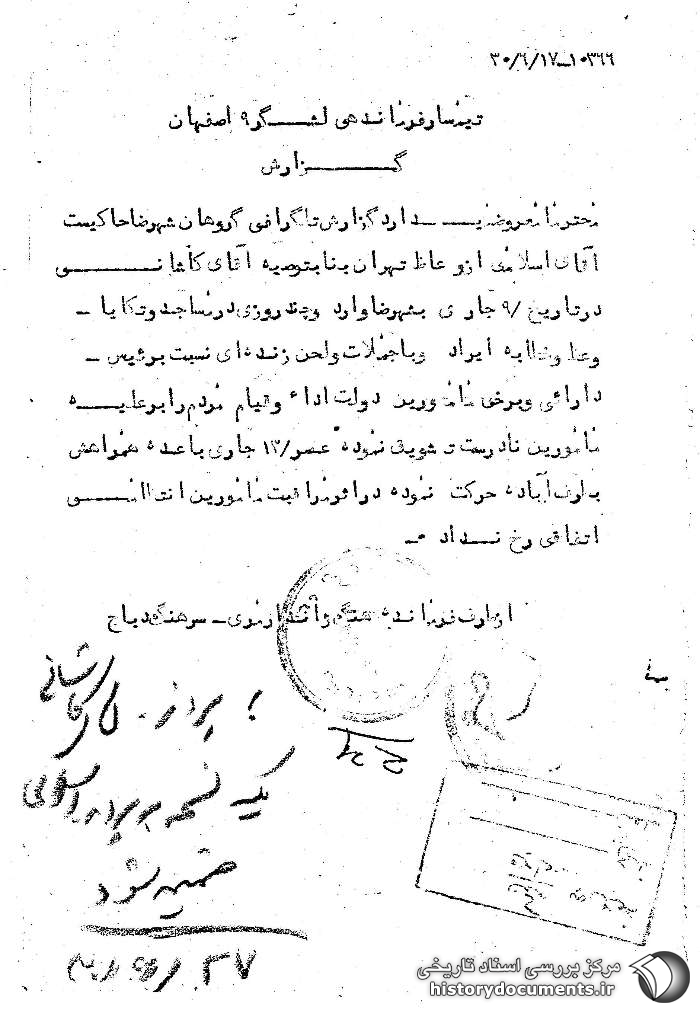 ۱۰۳۶۶ــ۳۰/۶/۱۷
تیمسار فرماندهی لشگر ۹ اصفهان
گزارش
محترما معروض میدارد گزارش تلگرافی گروهان شهرضا حاکیست
آقای اسلامی از وعاظ تهران بنا بتوصیه آقای کاشانی
در تاریخ ۹/ جاری بشهرضا وارد و چند روزی در مساجد و تکایا ـ
وعظ و خطابه ایراد و با جملات و لحن زننده ای نسبت برئیس ـ
دارائی و برخی مامورین دولت اداء و قیام مردم را بر علیه
مامورین نادرست تشویق نموده عصر ۱۳/ جاری با عده همراهش
بطرف آباده حرکت نموده در اثر مراقبت مامورین انتظامی
اتفاقی رخ نداد ـ
از طرف فرمانده هنگ ژاندارمری ـ سرهنگ دیباج
کاشانی
یک نسخه به پرونده اسلامی
ضمیمه شود
۲۷
مرکز بررسی اسناد تاریخی
historydocuments.ir